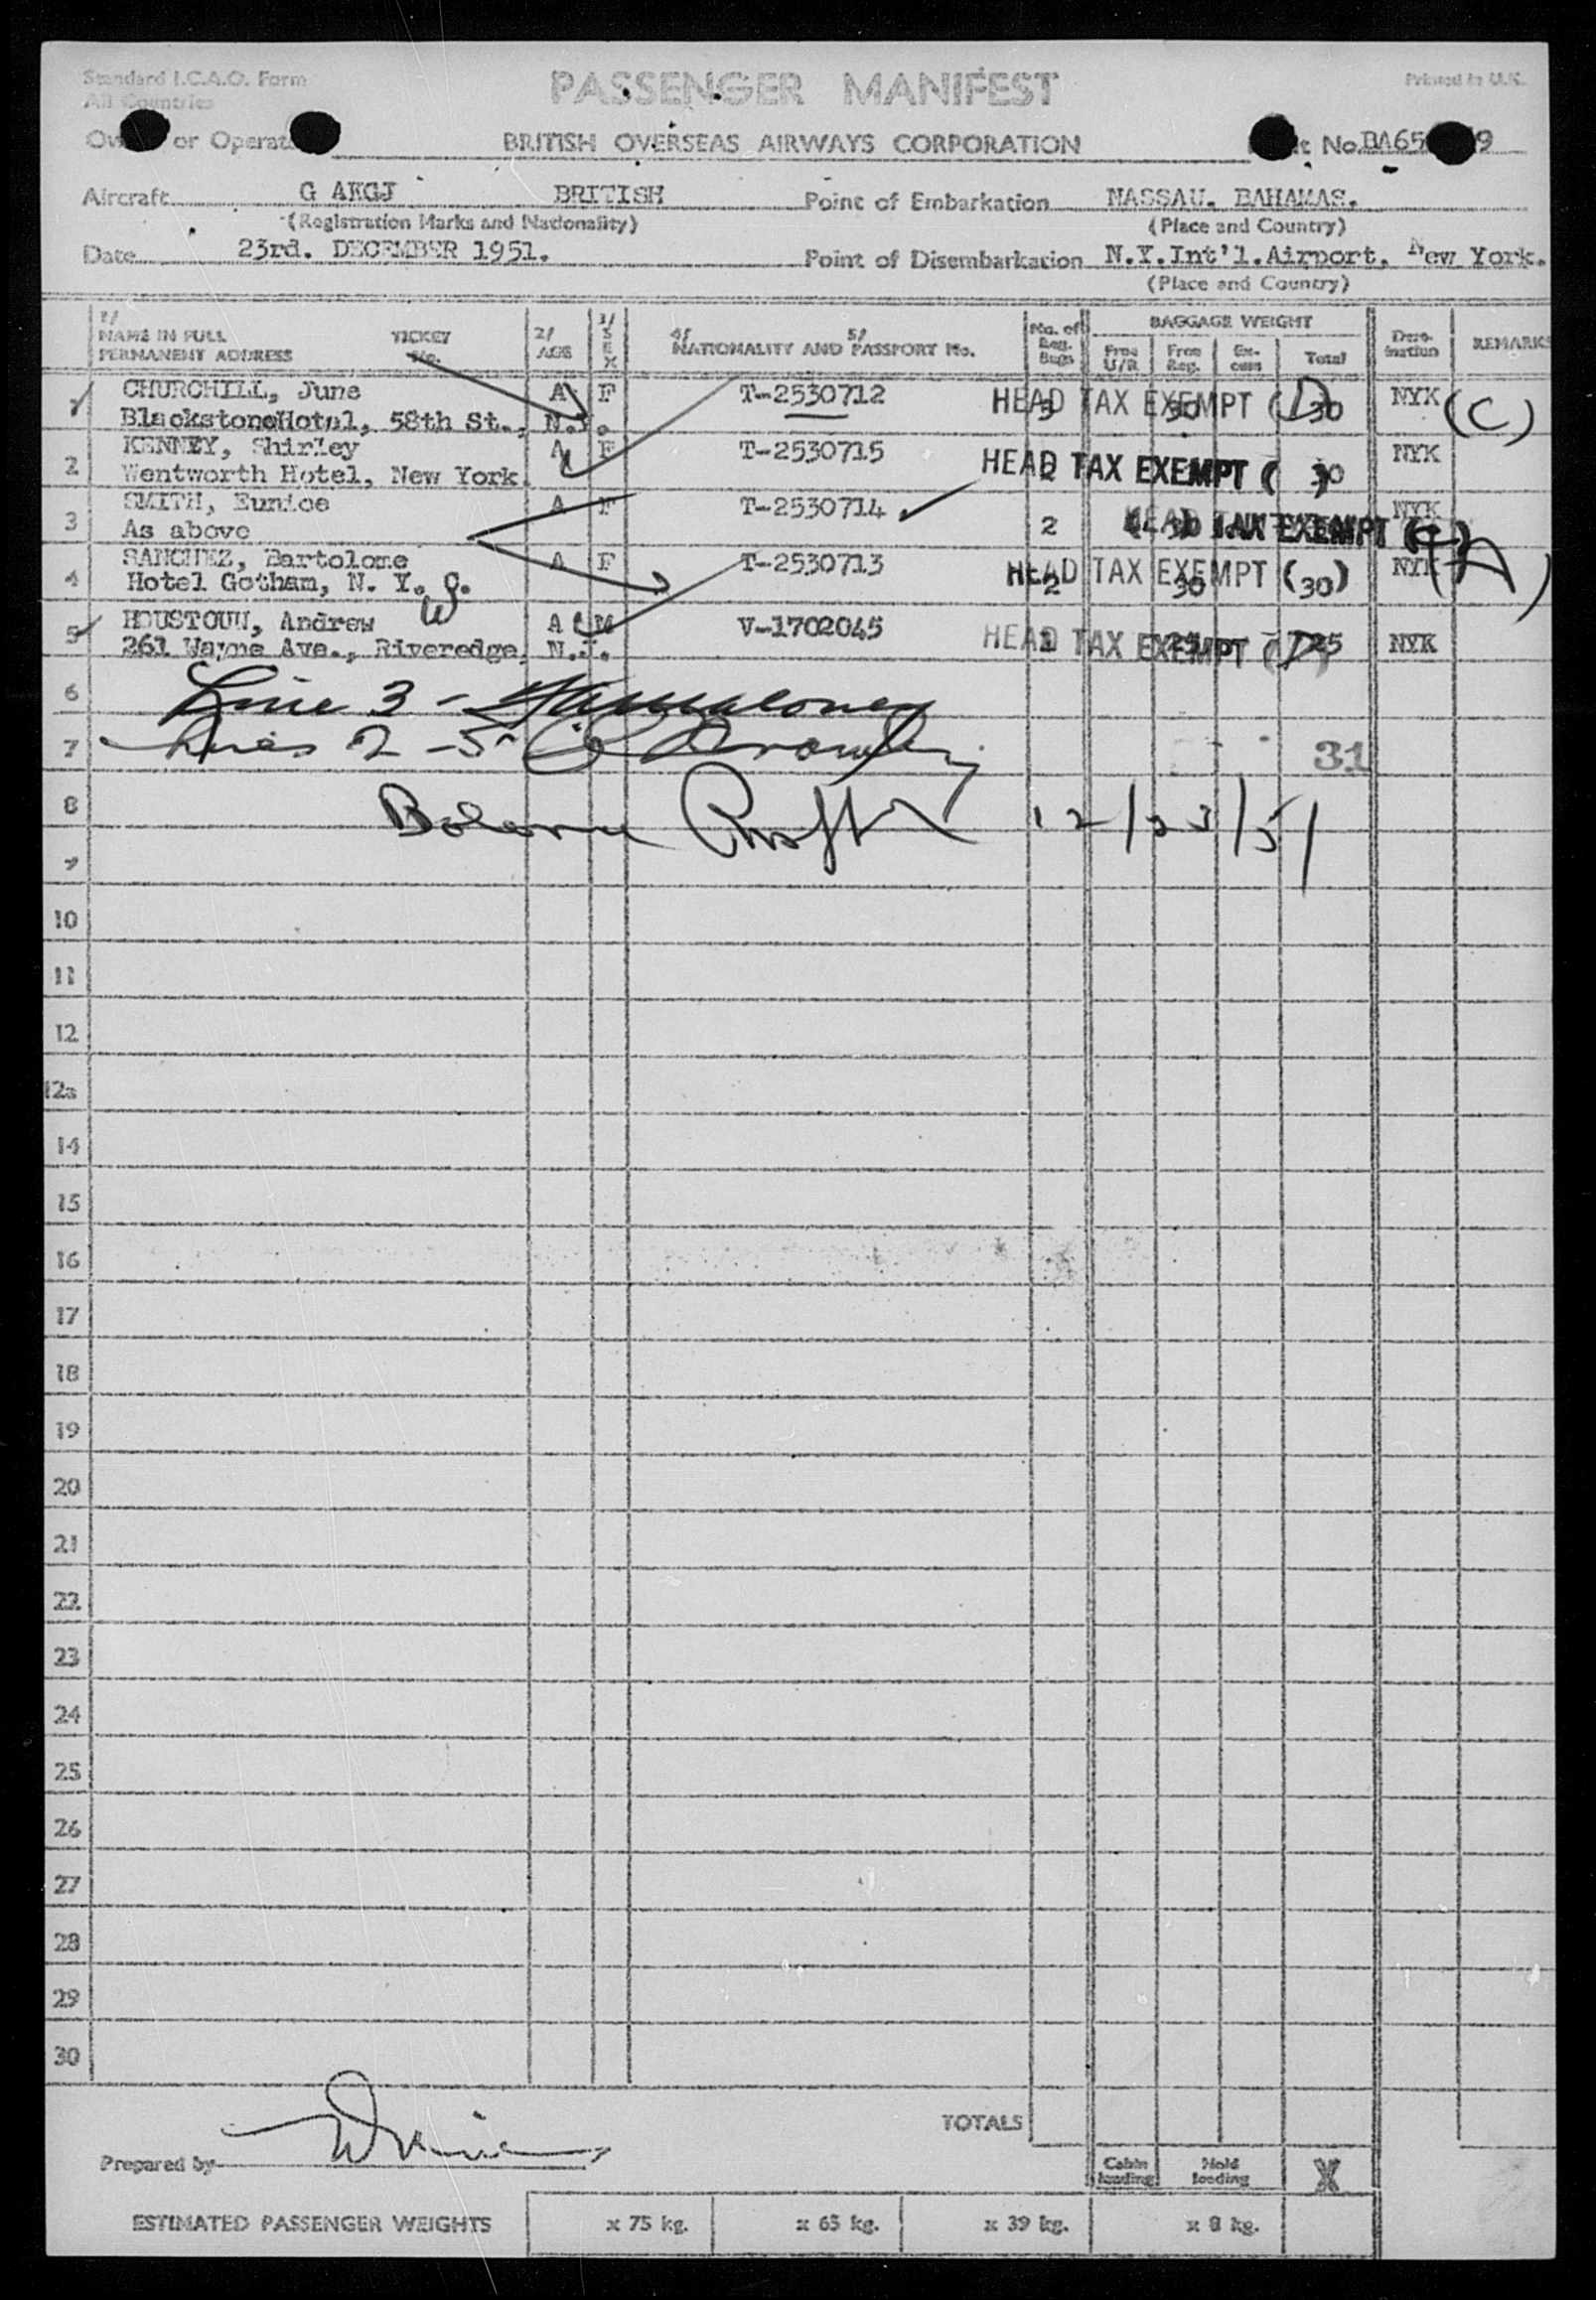 Standard I.C.A.O. Form
All Countries
PASSENGER MANIFEST
Printed in U.K.
or BRITISH OVERSEAS AIRWAYS CORPORATION
No.
Aircraft G AKGJ BRITISH
(Registration Marks and Nationality)
Point of Embarkation NASSAU. BAHAMAS.
(Place and Country)
Date 23rd. DECEMBER 1951.
Point of Disembarkation N.Y.Int'l.Airport. New York.
(Place and Country)
1/ NAME IN FULL PERMANENT ADDRESS TICKET No. 2/ AGE 3/ SEX 4/ 5/ NATIONALITY AND PASSPORT No. No. of Reg. Bags BAGGAGE WEIGHT Free U/R Free Reg. Ex-cess Total Dest-ination REMARKS
CHURCHILL, June A F T-2530712 HEAD TAX EXEMPT ( 30 NYK (C)
BlackstoneHotel, 58th St., N.Y.
2 KENNEY, Shirley A F T-2530715 HEAD TAX EXEMPT ( ) 30 NYK
Wentworth Hotel, New York
3 SMITH, Eunice A F T-2530714 2 HEAD TAX EXEMPT NYK
As above
4 SANCHEZ, Bartolome A F T-2530713 2 HEAD TAX EXEMPT 30 (30) NYK (A)
Hotel Gotham, N. Y. C.
5 HOUSTOUN, Andrew A M V-1702045 HEAD TAX EXEMPT ( 25 NYK
261 Wayne Ave., Riveredge, N.J.
6 Line 3 -
7 Lines 2 - 5
31
8 12/23/51
9
10
11
12
12a
14
15
16
17
18
19
20
21
22
23
24
25
26
27
28
29
30
TOTALS
Prepared by
Cabin loading Hold loading X
ESTIMATED PASSENGER WEIGHTS x 75 kg. x 65 kg. x 39 kg. x 8 kg.